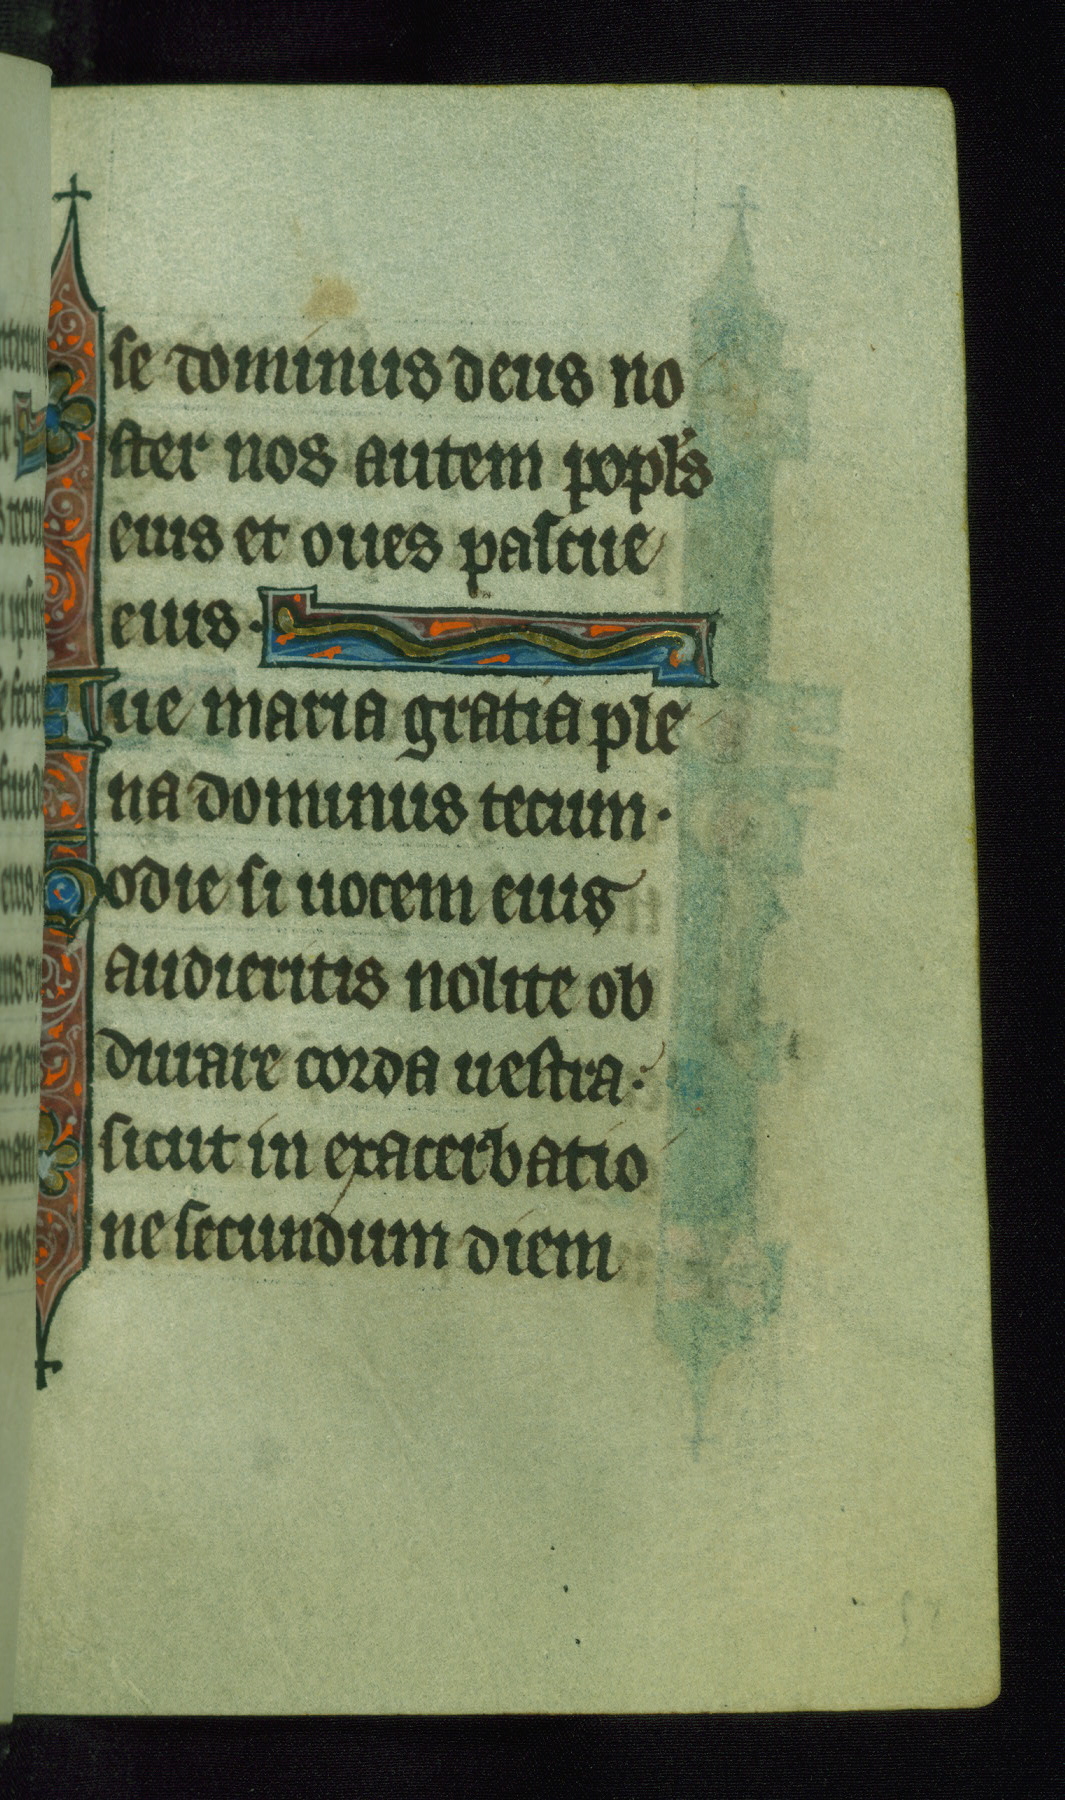 se dominus deus no
ster nos autem popl's
eius et oues pascue
eius.
Aue maria gratia ple
na dominus tecum.
Hodie si uocem eius
audieritis nolite ob
durare corda uestra:
sicut in exacerbatio
ne secundum diem